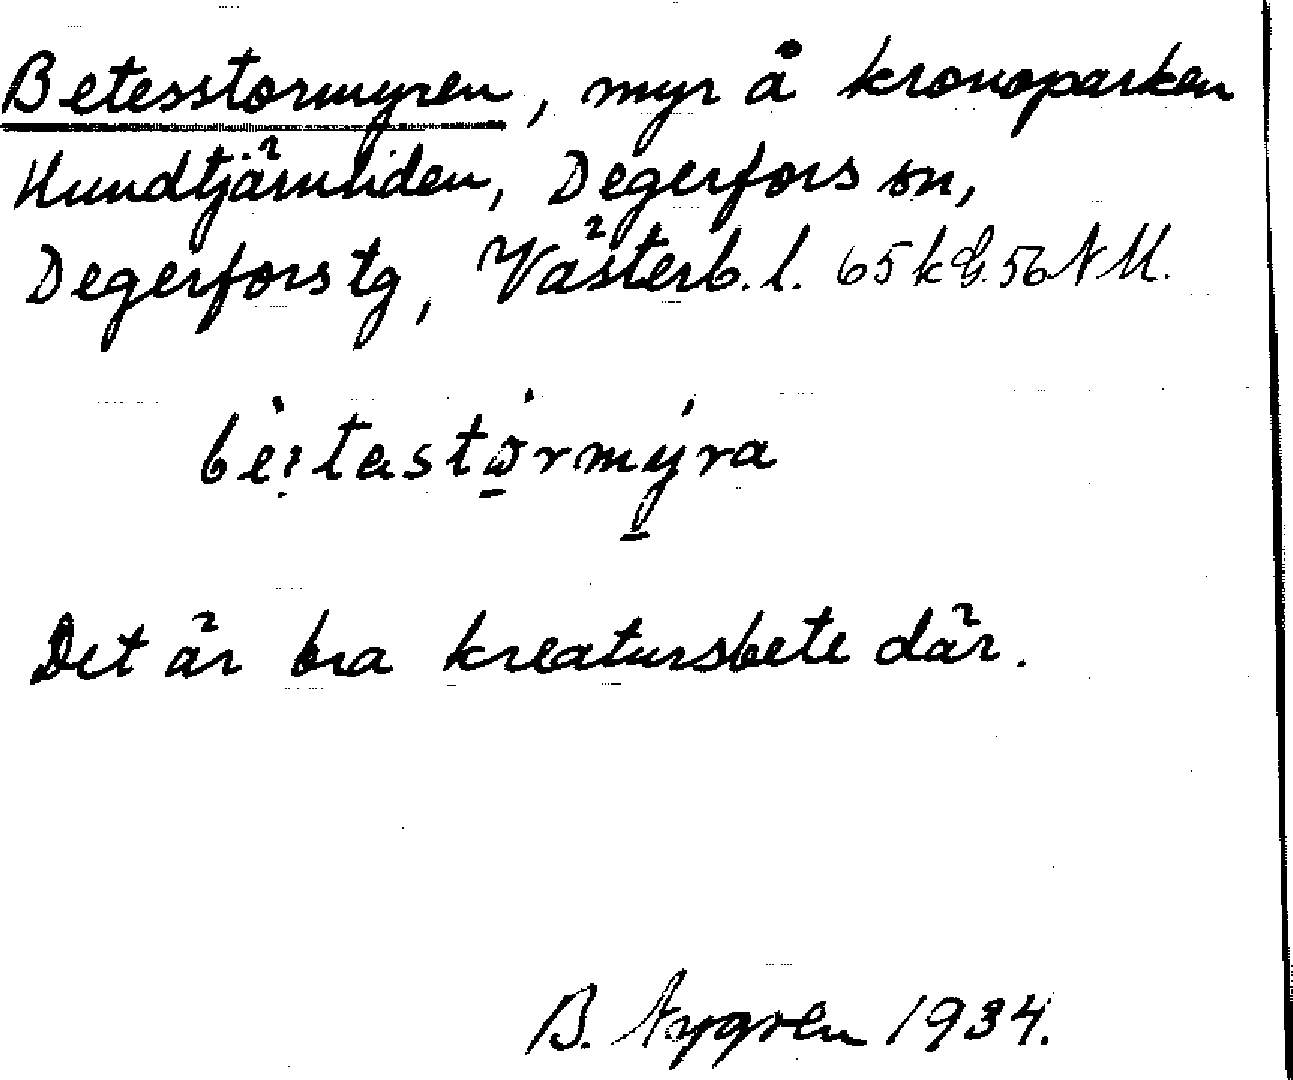 Betesstormyren, myr å kronoparken
Hundtjärnliden, Degerfors sn,
Degerfors tg, Västerb. l. 65 k G. 56 N M.
Det är bra kreatursbete där.
B. Nygren 1934.